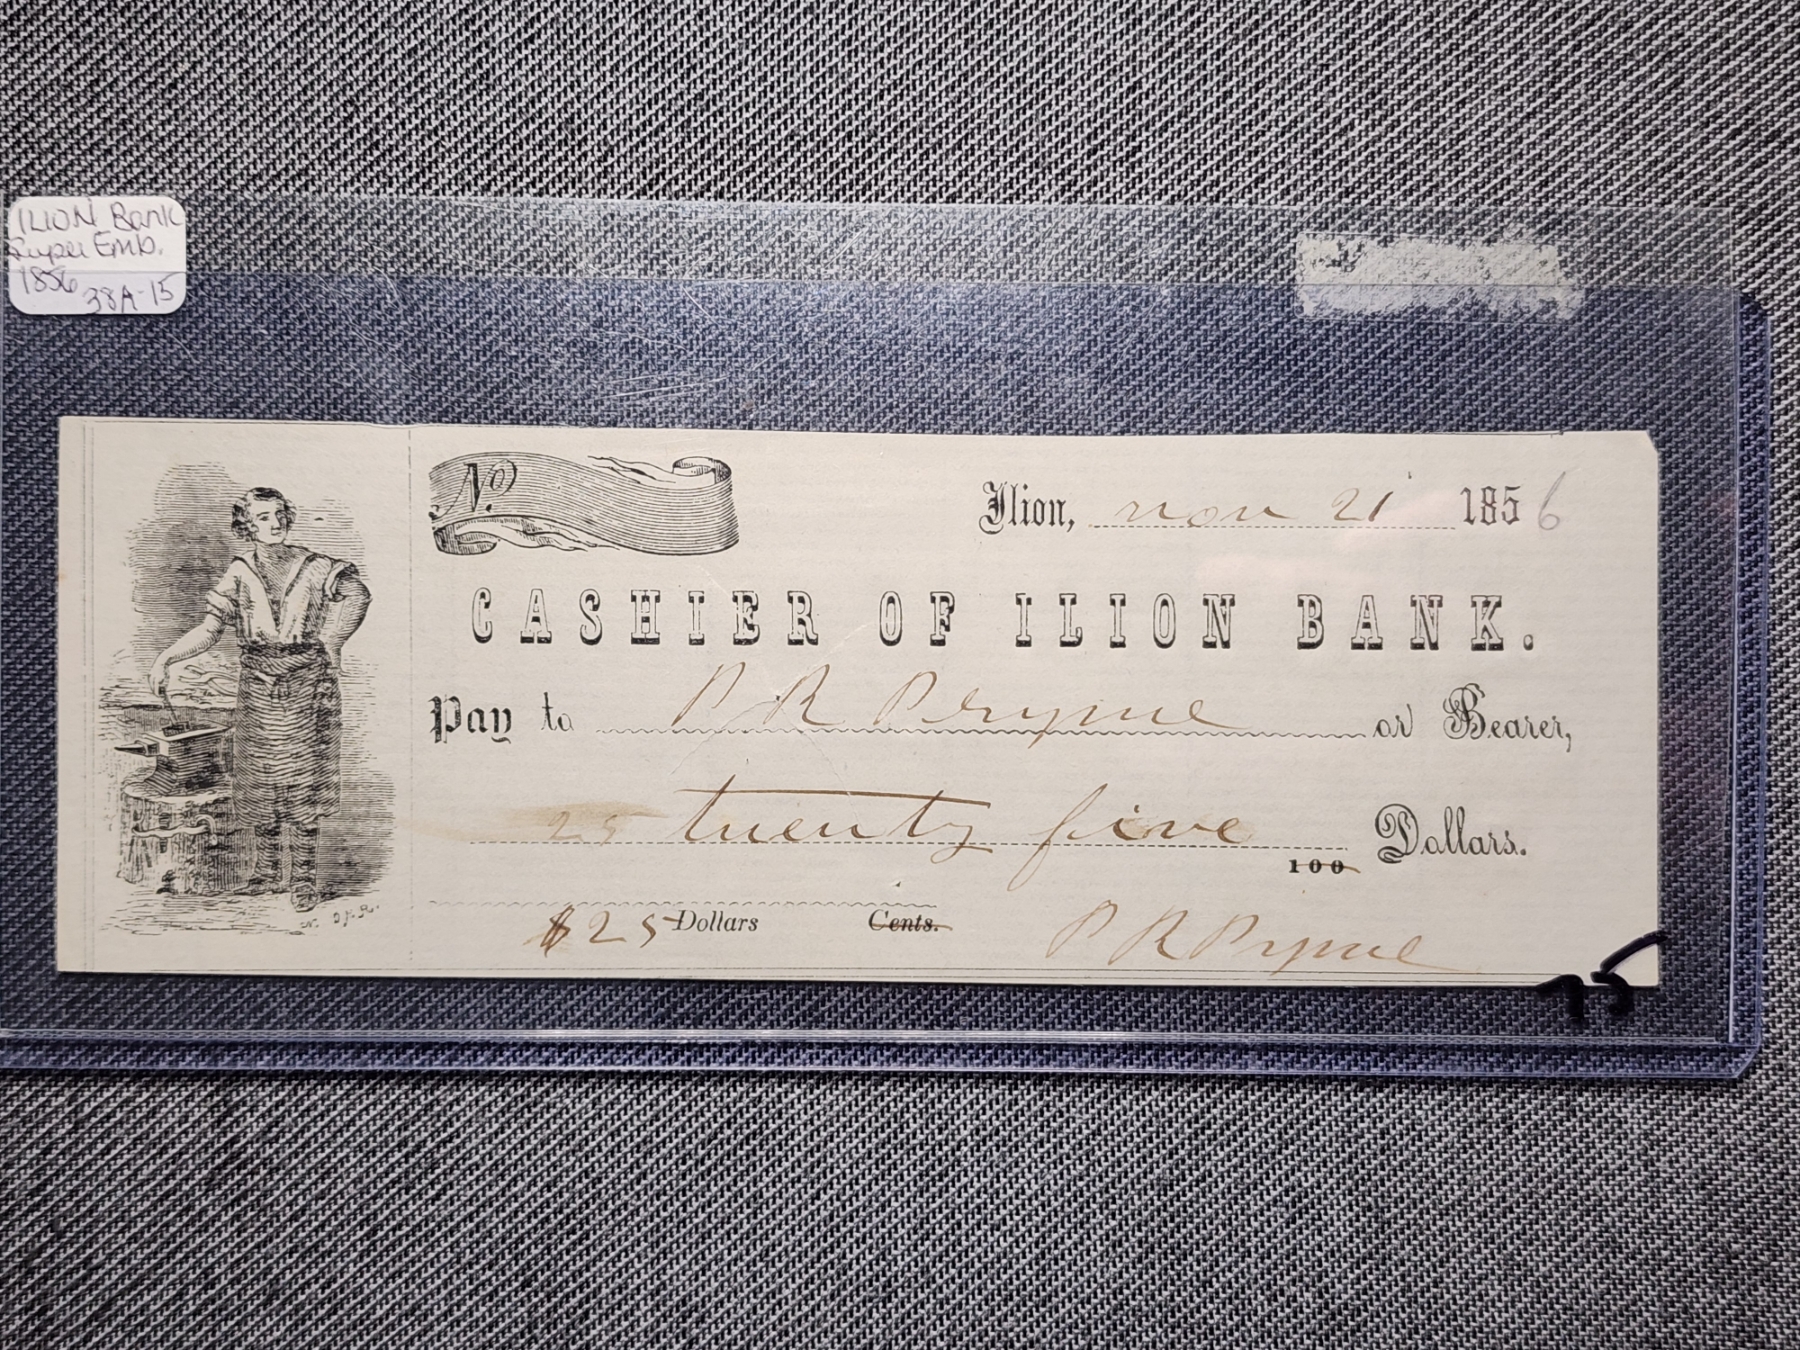 ILION Bank
Super Emb.
1856 38A-15
No.
Ilion, nov 21 1856
CASHIER OF ILION BANK.
Pay to P R Pryme or Bearer,
25 twenty five 100 Dollars.
$25 Dollars Cents. P R Pryme
75